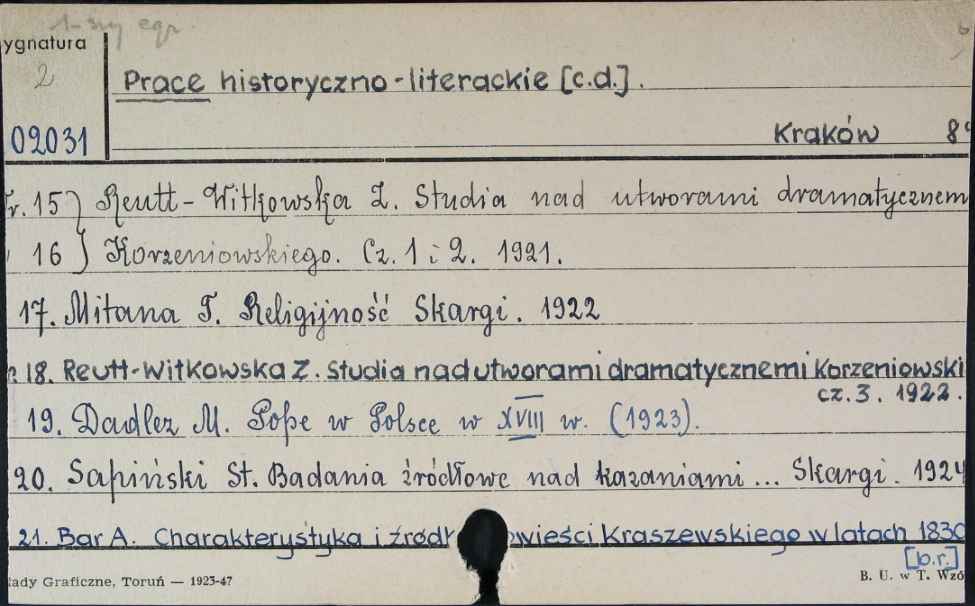 1-szy egz.
ygnatura
2
Prace historyczno-literackie [c.d.].
02031
Kraków 8°
r. 15} Reutt-Witkowska Z. Studia nad utworami dramatycznem
16} Korzeniowskiego. Cz. 1 i 2. 1921.
17. Mitana T. Religijność Skargi. 1922
18. Reutt-Witkowska Z. Studia nad utworami dramatycznemi Korzeniowski
cz. 3. 1922.
19. Dadlez M. Pope w Polsce w XVIII w. (1923).
20. Sapiński St. Badania źródłowe nad kazaniami... Skargi. 1924
21. Bar A. Charakterystyka i źródł owieści Kraszewskiego w latach 1830
[b.r.]
łady Graficzne, Toruń — 1923-47
B. U. w T. Wzó